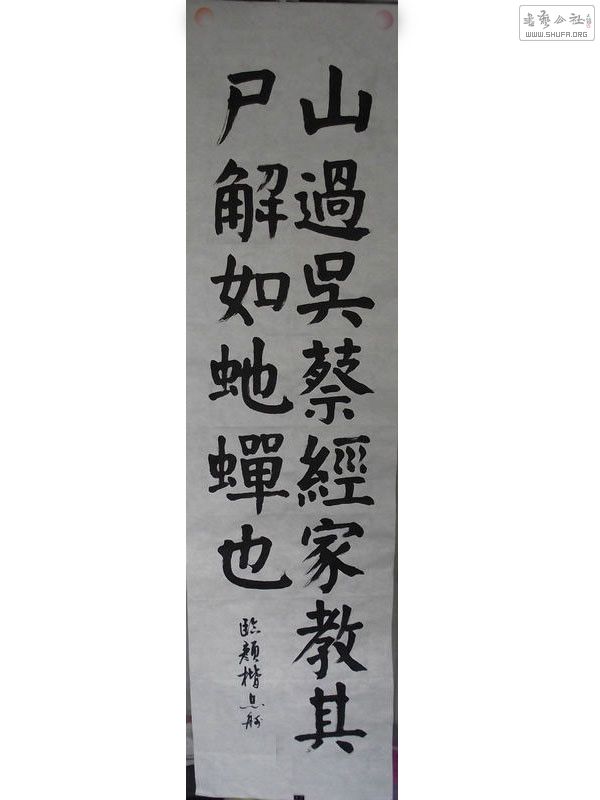 山過吳蔡經家教其
尸解如虵蟬也
臨顏楷
書藝公社
WWW.SHUFA.ORG